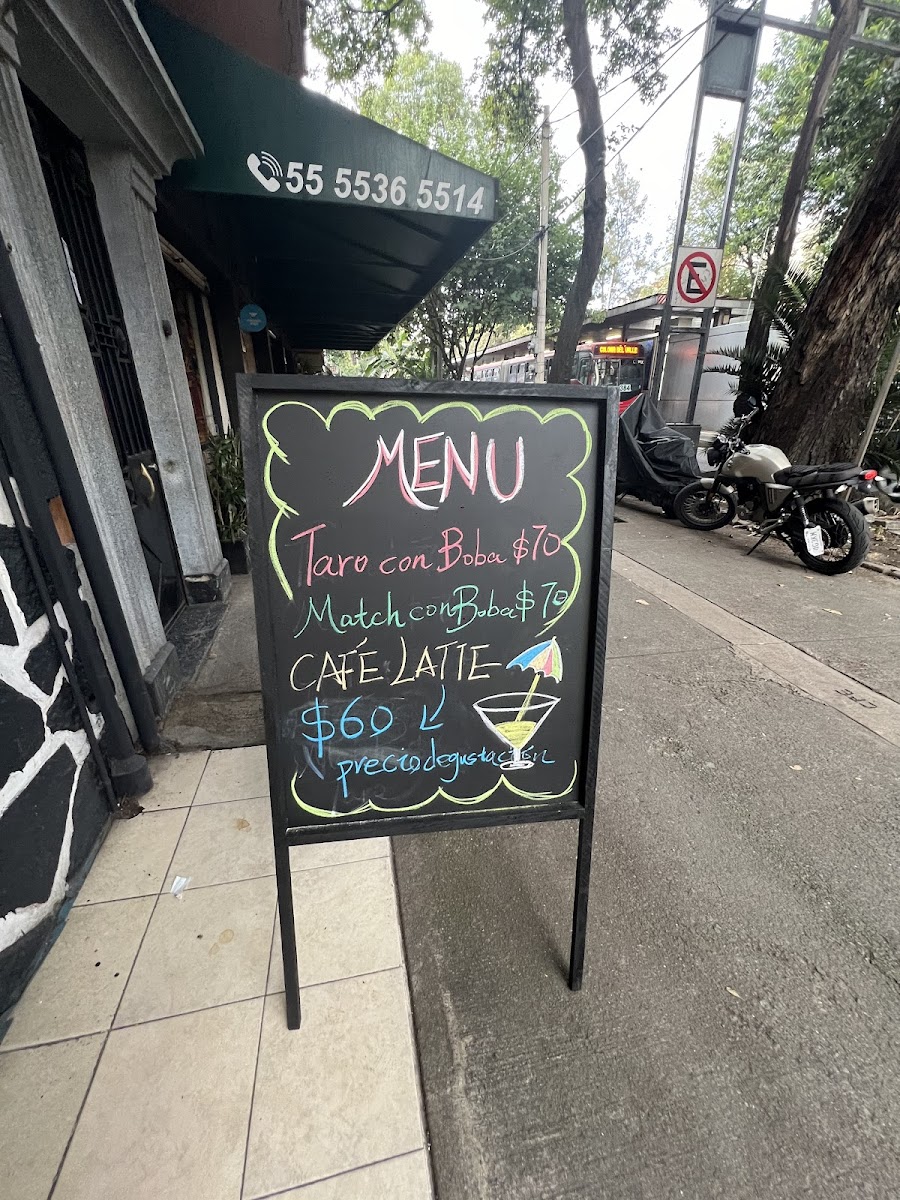 55 5536 5514
E
COLONIA DEL VALLE
MENU
Taro con Boba $70
Match con Boba $70
CAFÉ LATTE
$60
precio degustación